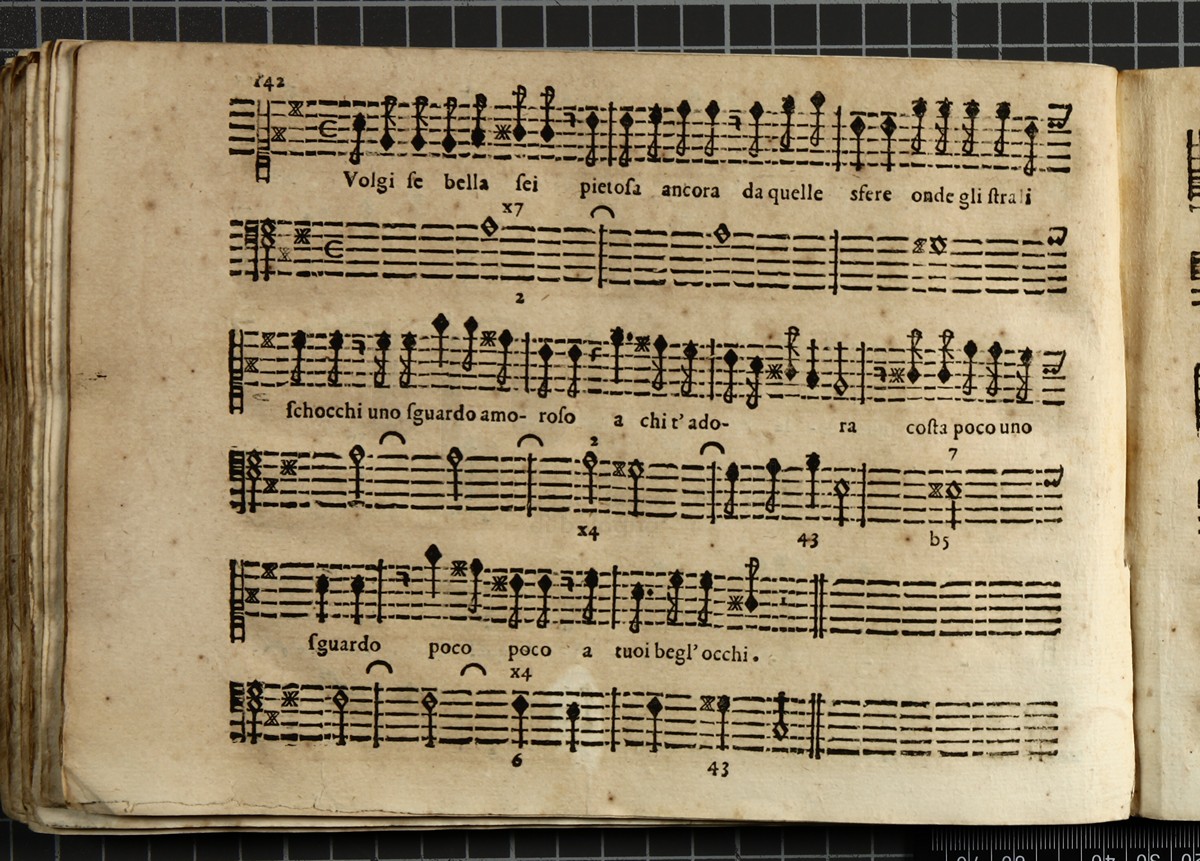 142
Volgi ſe bella ſei pietoſa ancora da quelle sfere onde gli ſtrali
x7
2
ſchocchi uno ſguardo amo- roſo a chi t' ado- ra coſta poco uno
2 7
x4 43 b5
ſguardo poco poco a tuoi begl' occhi.
x4
6 43